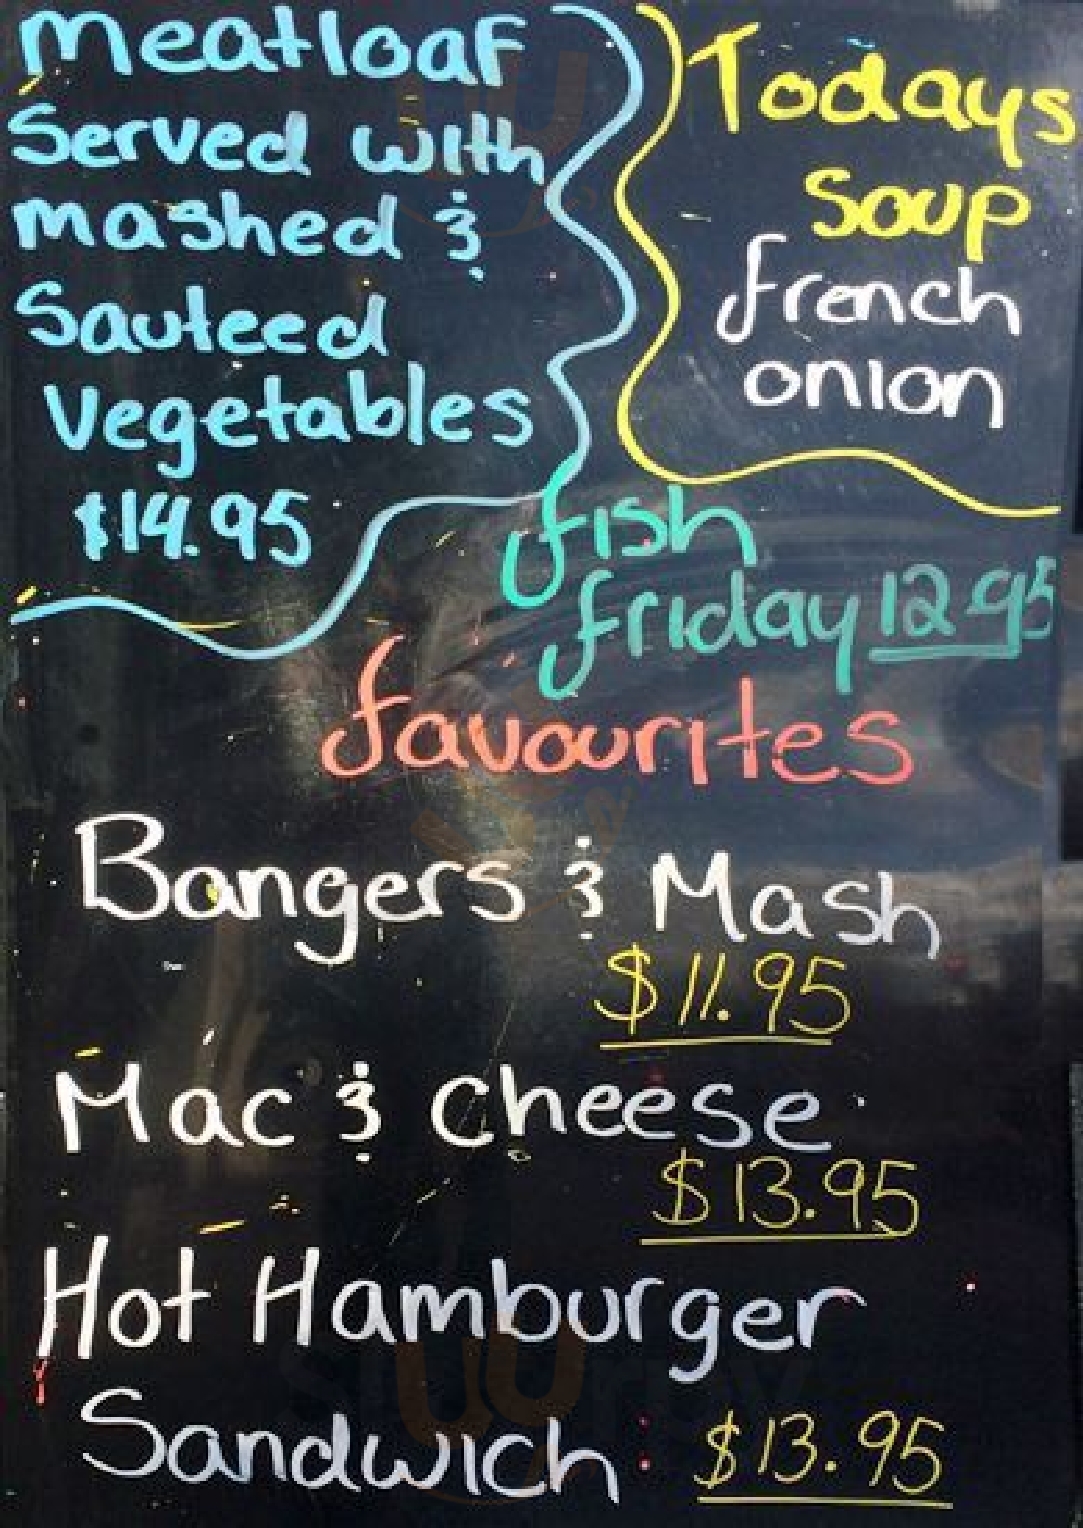 Meatloaf
Served with
mashed &
Sauteed
Vegetables
$14.95
Todays
Soup
french
onion
fish
friday 12.95
favourites
Bangers & Mash
$11.95
Mac & Cheese
$13.95
Hot Hamburger
Sandwich: $13.95